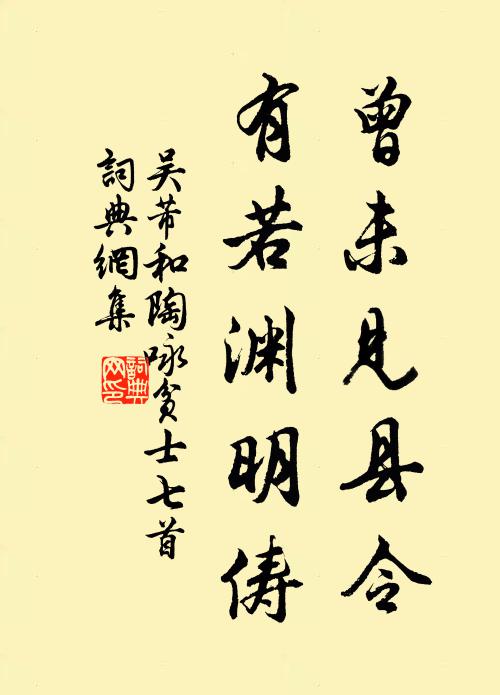 曾未见县令
有若渊明俦
吴芾和陶咏贫士七首
詞典網集
詞典网印